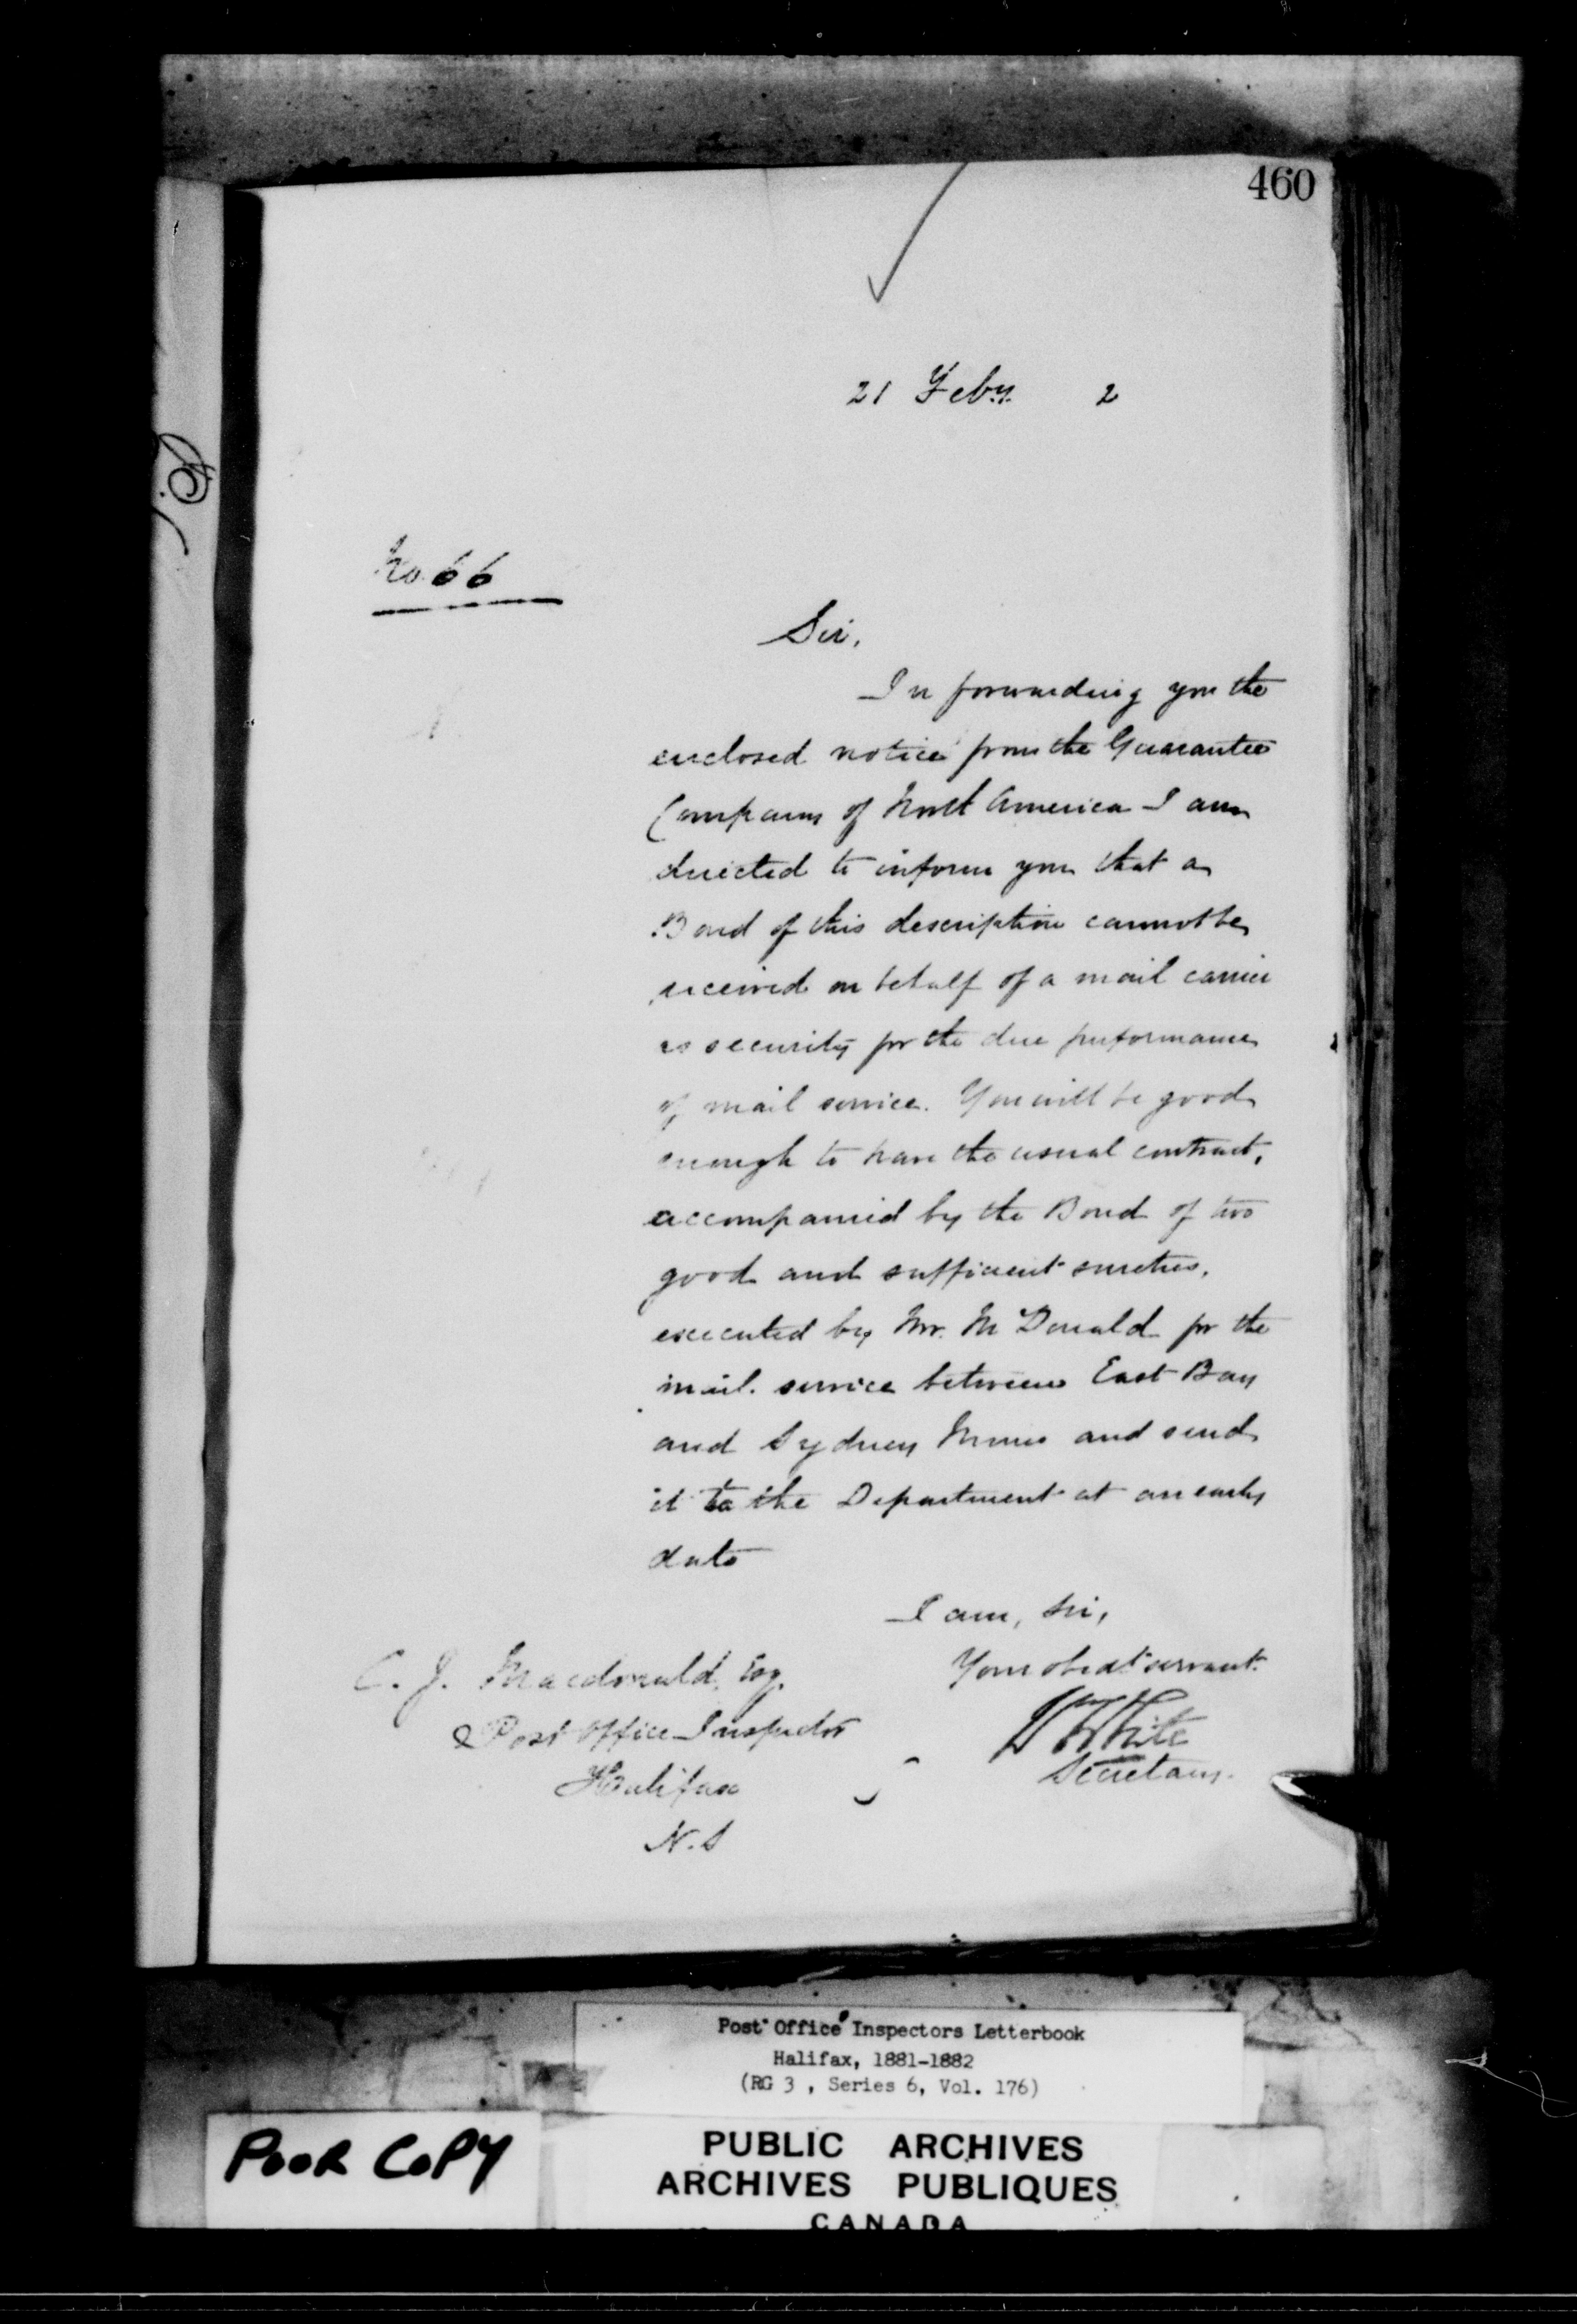 460
21 Feby. 2
No. 66
Sir,
In forwarding you the
enclosed notice from the Guarantee
Company of North America I am
directed to inform you that a
Bond of this description cannot be
received on behalf of a mail carrier
as security for the due performance
of mail service. You will be good
enough to have the usual contract,
accompanied by the Bond of two
good and sufficient sureties,
executed by Mr. McDonald for the
mail service between East Bay
and Sydney Mines and send
it to the Department at an early
date
I am, Sir,
Your obedt servant.
W White
Secretary.
C. J. Macdonald, Esq.
Post Office Inspector
Halifax
N.S
Post Office Inspectors Letterbook
Halifax, 1881-1882
(RG 3 , Series 6, Vol. 176)
POOR COPY
PUBLIC ARCHIVES
ARCHIVES PUBLIQUES
CANADA